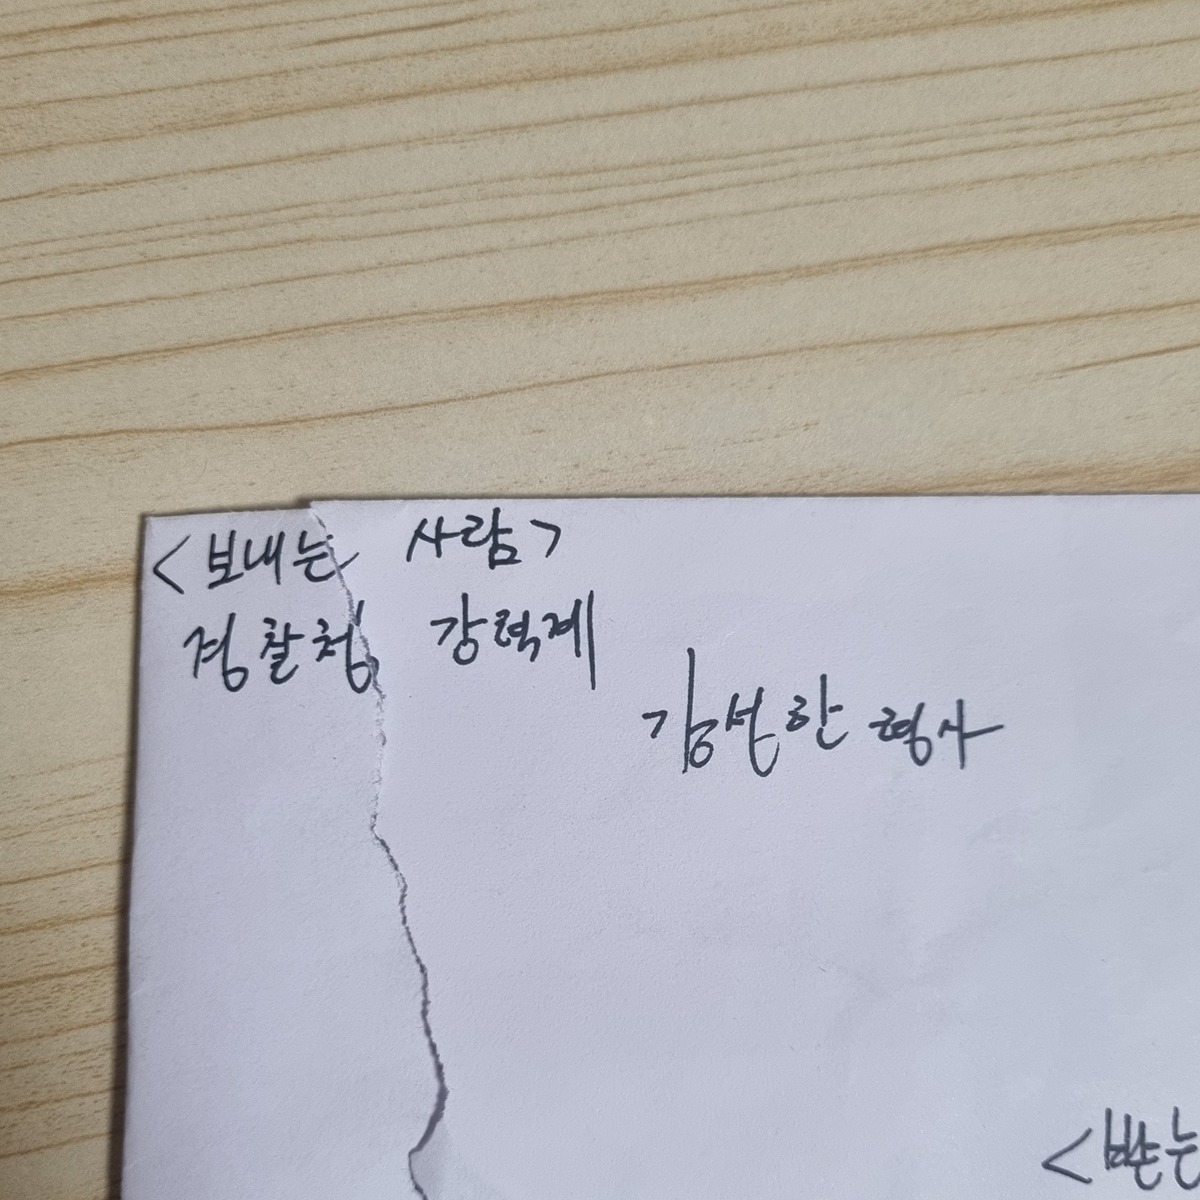 <보내는 사람>
경찰청 강력계
김선한 형사
<받는